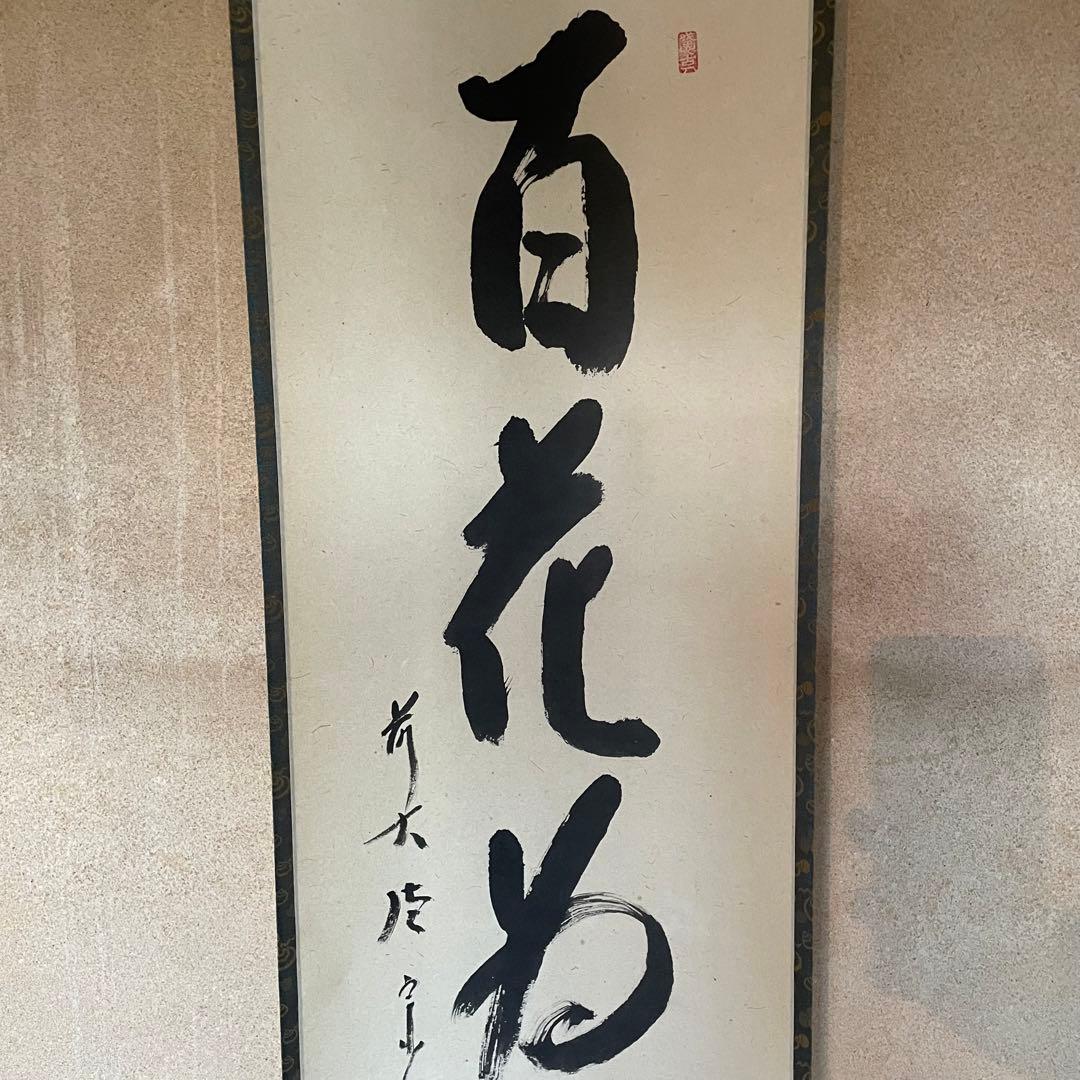 百花為
前大徳宗